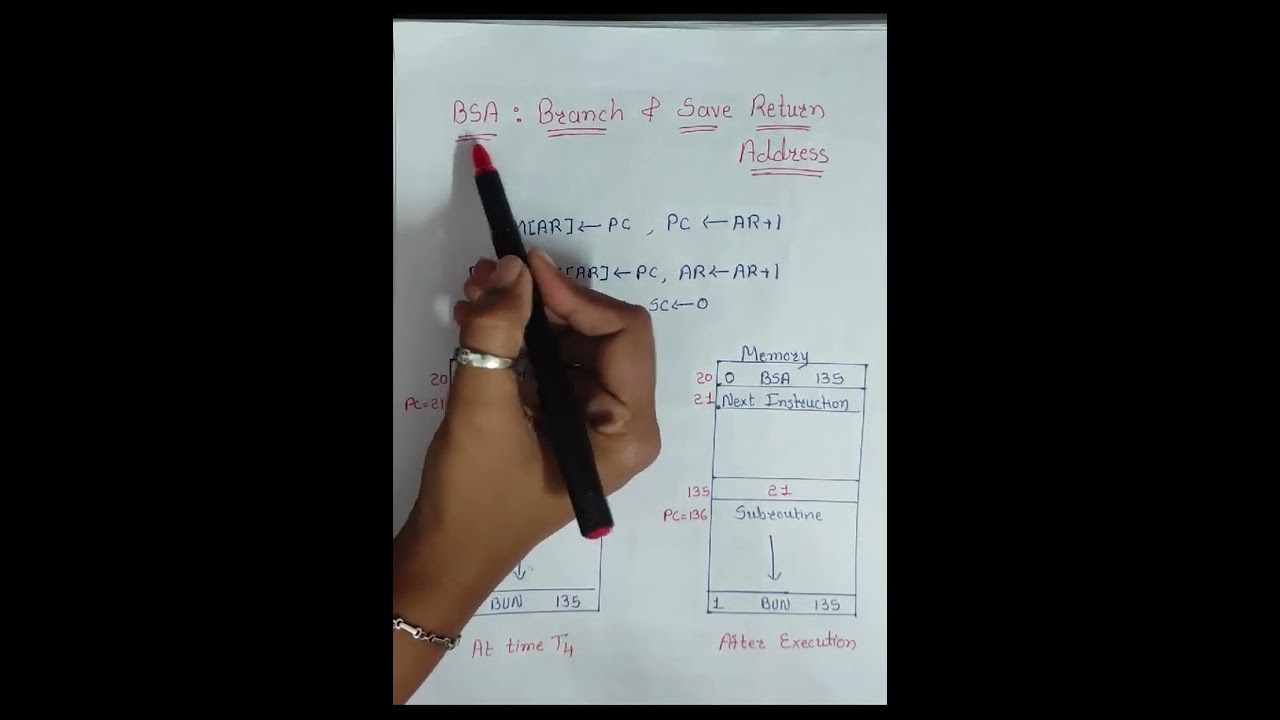 BSA : Branch & Save Return
Address
[AR]← PC , PC ← AR+1
[AR]← PC, AR← AR+1
SC← 0
Memory
20
PC=21
20 0 BSA 135
21 Next Instruction
135 21
PC=136 Subroutine
BUN 135
1 BUN 135
At time T4
After Execution